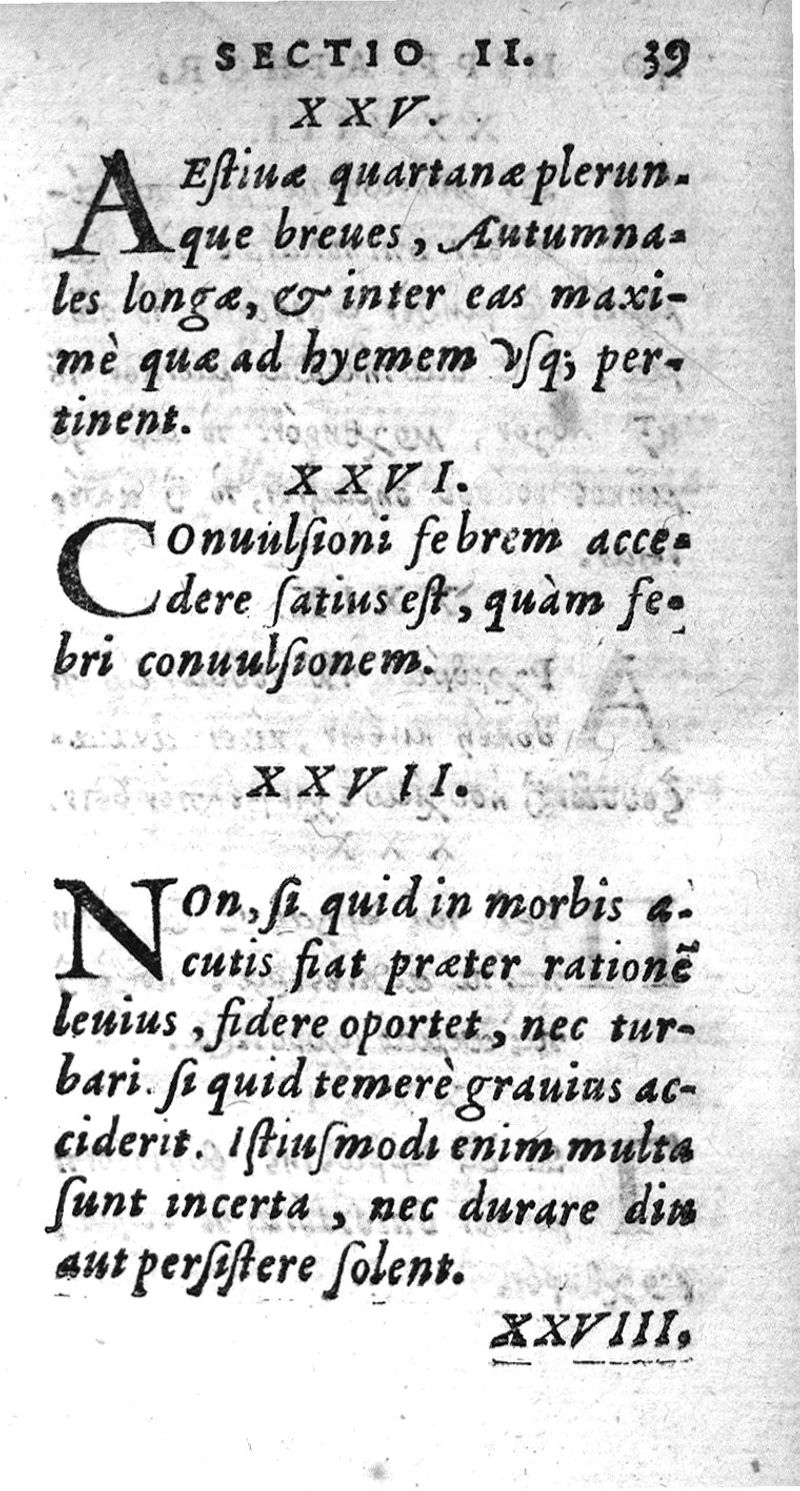 SECTIO II. 39
XXV.
AEſtiuæ quartanæ plerun-
que breues, Autumna-
les longæ, & inter eas maxi-
mè quæ ad hyemem vſq; per-
tinent.
XXVI.
COnuulſioni febrem acce-
dere ſatius eſt, quàm fe-
bri conuulſionem.
XXVII.
NOn, ſi quid in morbis a-
cutis fiat præter rationẽ
leuius, fidere oportet, nec tur-
bari ſi quid temerè grauius ac-
ciderit. Iſtiuſmodi enim multa
ſunt incerta, nec durare diu
aut perſiſtere ſolent.
XXVIII,